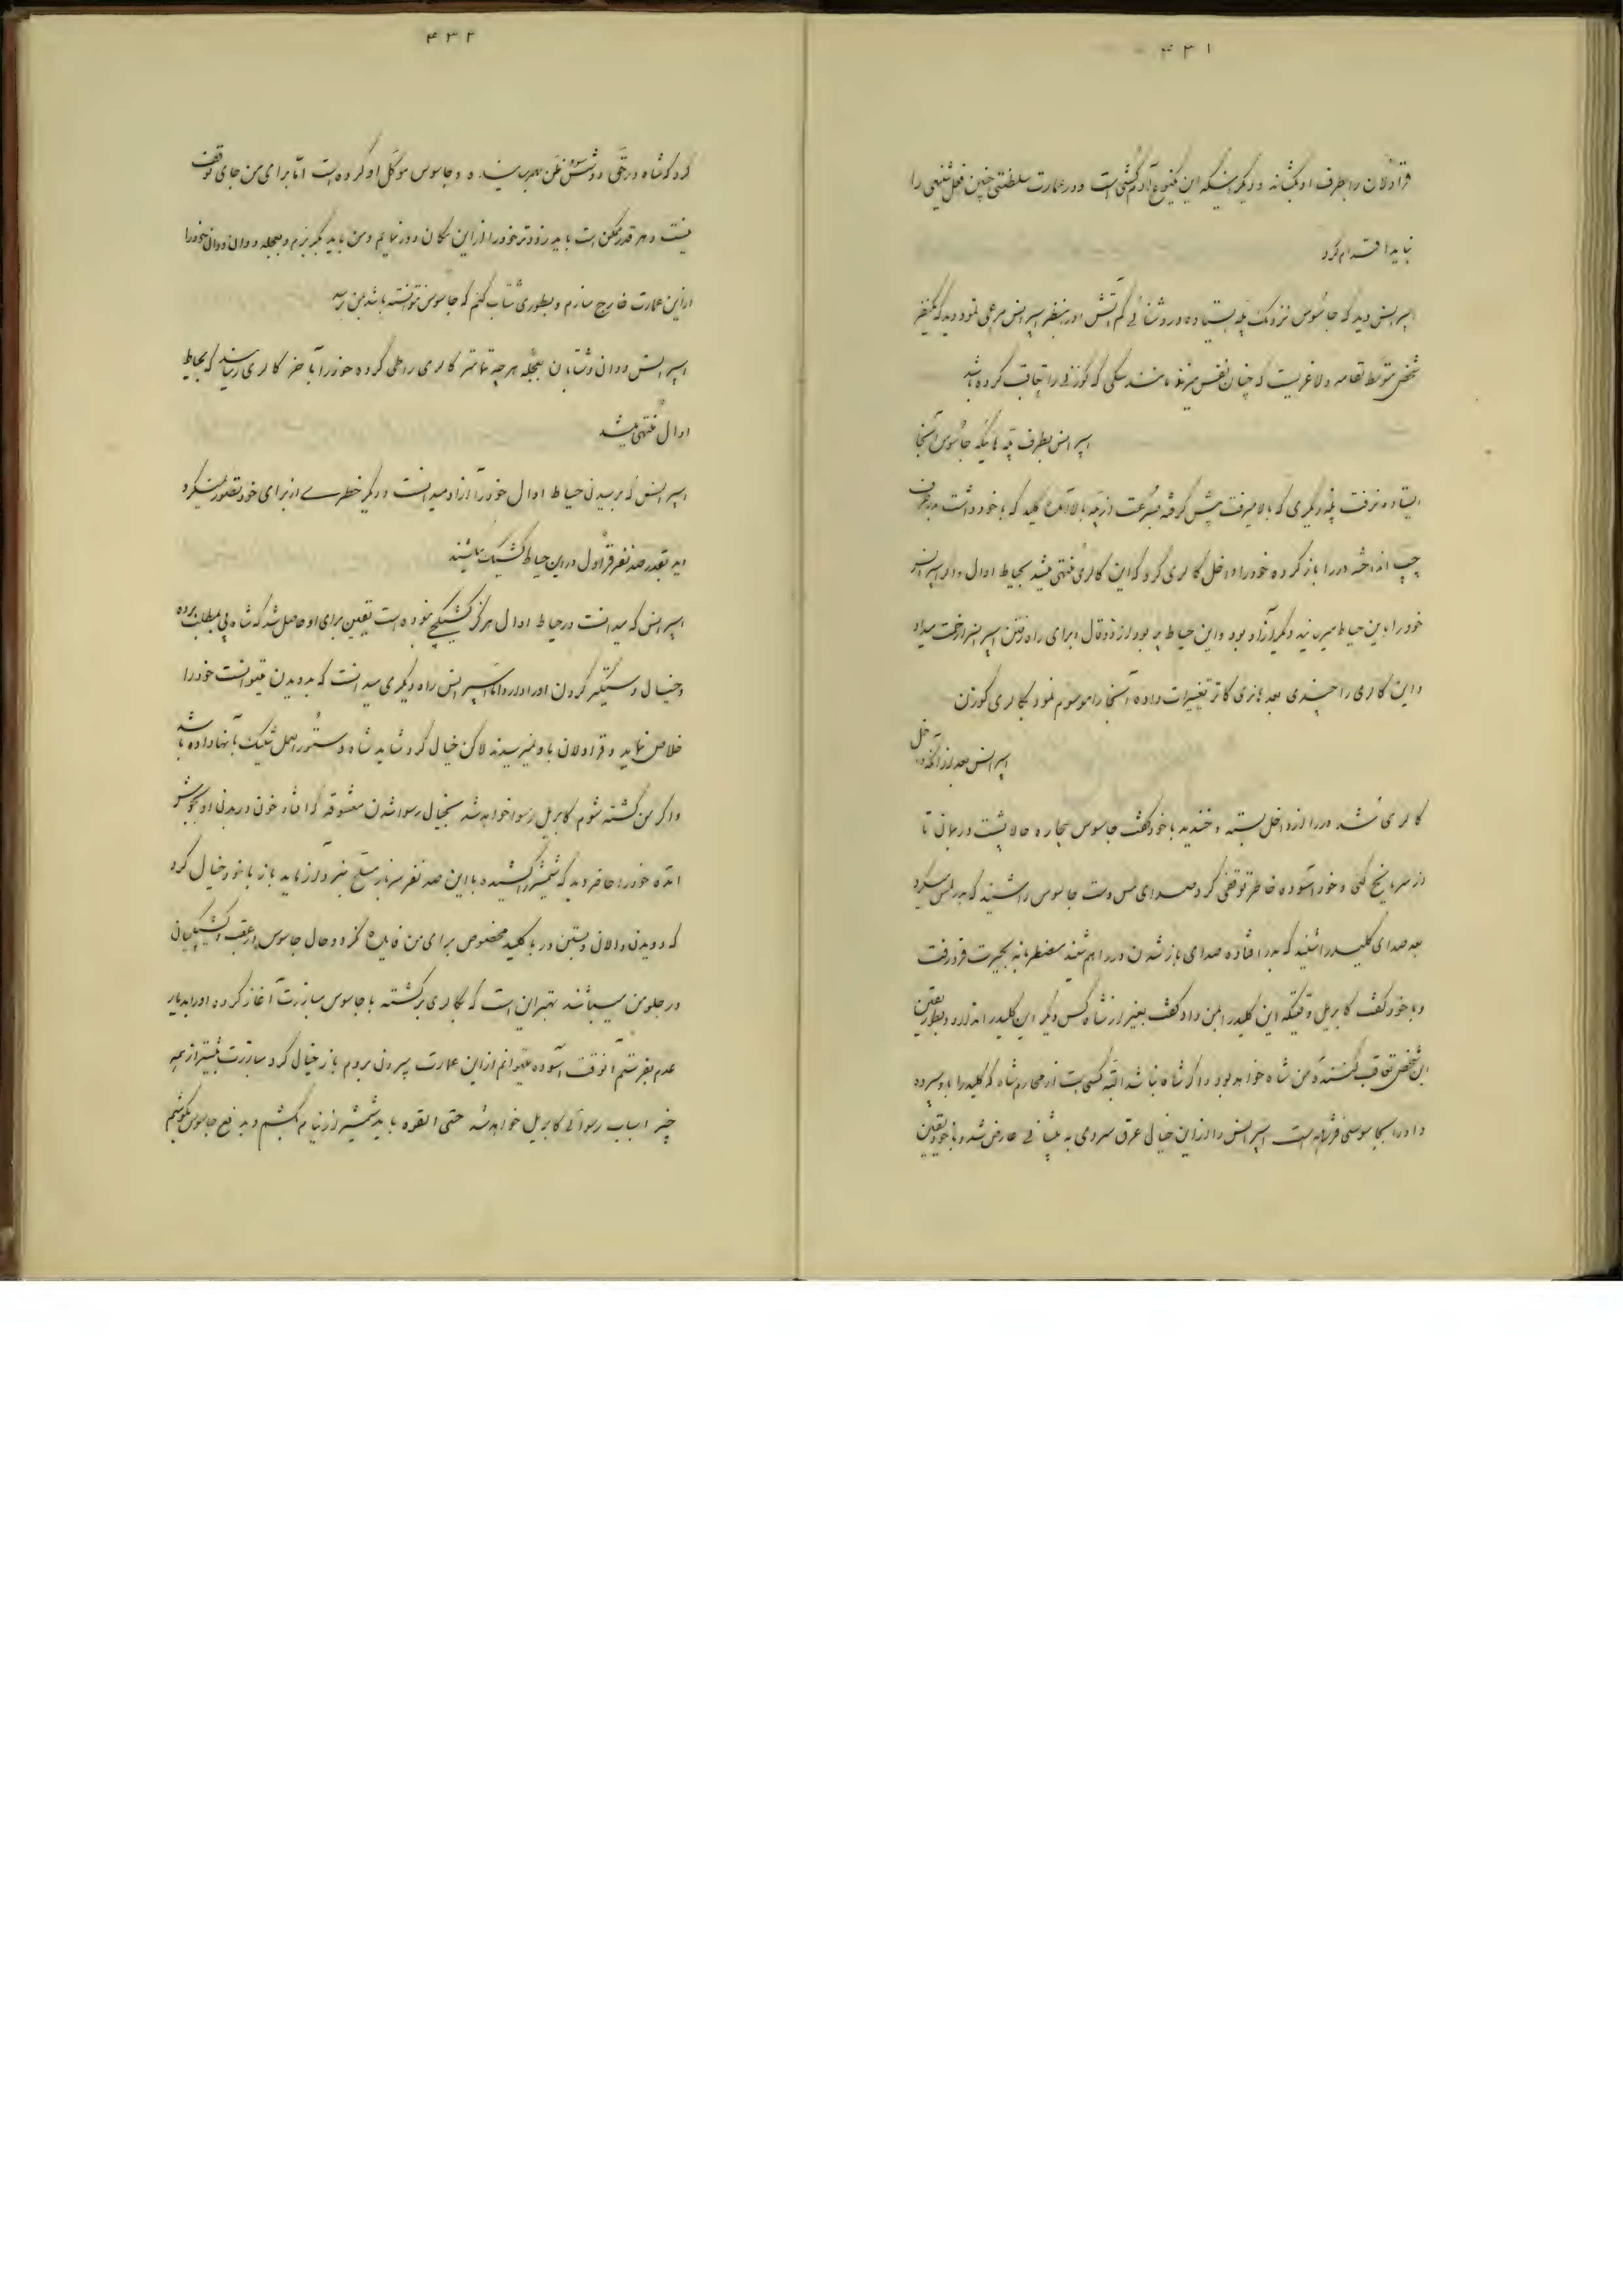 ۴۳۱
قراولان را بطرف او بکشانه و دیگر اینکه این یکنوع آدم کشی است و در عمارت سلطنتی چنین فعل شنیعی را
نباید اقدام کرد
اسپرانس دید که جاسوس نزدیک پله ایستاده و در روشنائی کم آتش او در نظر اسپرانس مرعی نمود دید که یکنفر
شخص متوسط القامه و لاغریست که چنان نفس میزند مانند سگی که گوزنی را تعاقب کرده باشد
اسپرانس بطرف پله هائیکه جاسوس آنجا
ایستاده نرفت پله دیگری که بالا میرفت پیش گرفته بسرعت از پله بالا آمده کلید که با خود داشت بدر طرف
چپ انداخته در را باز کرده خود را داخل گالری کرد که این گالری منتهی میشد بحیاط اوال و اگر اسپرانس
خود را باین حیاط میرسانید دیگر آزاد بود و این حیاط پر بود از ذوقال و برای راه رفتن اسپرانس را زحمت میداد
و این گالری را چندی بعد هانری کاتر تغییرات داده آنجا را موسوم نمود بگالری گوزن
اسپرانس بعد از آنکه داخل
گالری شد در را از داخل بسته و خندید با خود گفت جاسوس بیچاره حالا پشت در بمانی تا
از سرما یخ کنی و خود آسوده خاطر توقفی کرد صدای لمس دست جاسوس را شنید که بدر لمس میکرد
بعد صدای کلید را شنید که بدر افتاده صدای باز شدن در را هم شنید مضطربانه بحیرت فرو رفت
و با خود گفت گابریل وقتیکه این کلید را بمن داد گفت بغیر از شاه کس دیگر این کلید را ندارد و بطور یقین
این شخص تعاقب کننده من شاه خواهد بود و اگر شاه نباشد البته کسی است از محارم شاه که کلید را باو سپرده
و او را بجاسوسی فرستاده است اسپرانس را از این خیال عرق سردی به پیشانی عارض شد و با خود یقین
۴۳۲
کرد که شاه در حقی دوشس سوء ظن بهم رسانیده و جاسوس موکل او کرده است اما برای من جای توقف
نیست و هر قدر ممکن است باید زودتر خود را از این مکان دور نمایم و من باید بگریزم و بعجله دوان دوان خود را
از این عمارت خارج سازم و بطوری شتاب کنم که جاسوس نتوانسته باشد بمن برسد
اسپرانس دوان و شتابان بعجله هر چه تمامتر گالری را طی کرده خود را بآخر گالری رسانید که بحیاط
اوال منتهی میشد
اسپرانس که برسیدن حیاط اوال خود را آزاد میدانست و دیگر خطری از برای خود تصور نمیکرد
دید بقدر صد نفر قراول در این حیاط کشیک میکشند
اسپرانس که میدانست در حیاط اوال هرگز کشیکچی نبوده است یقین برای او حاصل شد که شاه پی بمطلب برده
و خیال دستگیر کردن او را دارد اما اسپرانس راه دیگری میدانست که بدویدن میتوانست خود را
خلاص نماید و قراولان باو نمیرسیدند لاکن خیال کرد شاید شاه دستور العمل شلیک بآنها داده باشد
و اگر من کشته شوم گابریل رسوا خواهد شد بخیال رسوا شدن معشوقه که افتاد خون در بدن او بجوش
آمده خود را حاضر دید که شمشیر کشیده با این صد نفر سرباز مسلح نبرد آزماید باز با خود خیال کرد
که دویدن دالان و بستن در با کلید مخصوص برای من فایده نکرد و حال جاسوس در عقب و کشیکچیان
در جلو من میباشند بهتر این است که بگالری برگشته با جاسوس مبارزت آغاز کرده او را بدیار
عدم بفرستم آنوقت آسوده میتوانم از این عمارت بیرون بروم باز خیال کرد مبارزت بیشتر از همه
چیز اسباب رسوائی گابریل خواهد شد حتی القوه باید شمشیر از نیام نکشم و بدفع جاسوس بکوشم